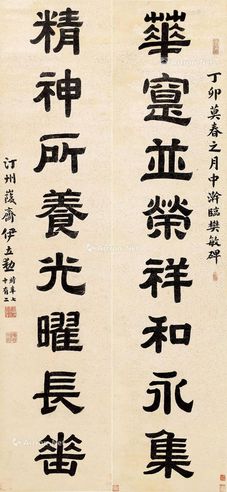 丁卯莫春之月中澣臨樊敏碑
華寔並榮祥和永集
精神所養光曜長𡴀
汀州㠅齋伊立勳時年七十有二